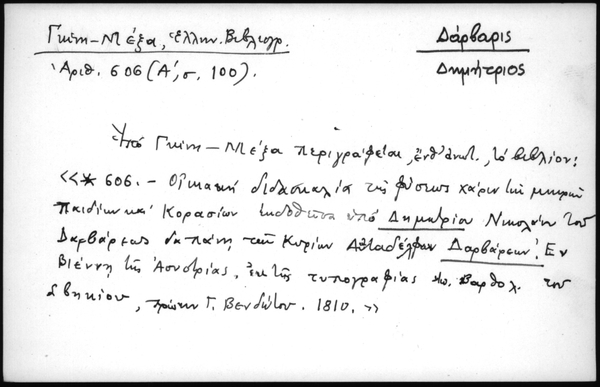 Γκίνη–Μέξα, Ἑλλην. Βιβλιογρ.
Ἀριθ. 606 (Α΄, σ. 100).
Δάρβαρις
Δημήτριος
Ὑπό Γκίνη – Μέξα περιγράφεται, ἔνθ' ἀνωτ., τό βιβλίον:
«* 606. – διδασκαλία τῆς φύσεως χάριν τῶν μικρῶν
Παιδίων καί Κορασίων ἐκδοθεῖσα ὑπό Δημητρίου Νικολάου τοῦ
Δαρβάρεως δαπάνῃ τῶν Κυρίων Αὐταδέλφων Δαρβάρεων. Ἐν
Βιέννῃ τῆς Ἀουστρίας, ἐκ τῆς τυπογραφίας Βαρθολ. του
Σβηκίου, πρώην Γ. Βενδώτου. 1810.»